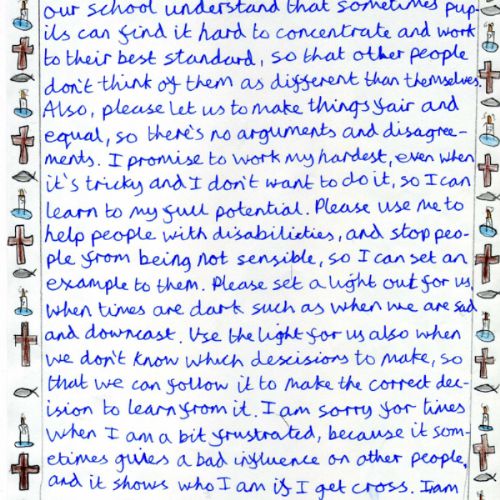 our school understand that sometimes pup-
ils can find it hard to concentrate and work
to their best standard, so that other people
don't think of them as different than themselves.
Also, please let us to make things fair and
equal, so there's no arguments and disagree-
ments. I promise to work my hardest, even when
it's tricky and I don't want to do it, so I can
learn to my full potential. Please use me to
help people with disabilicties, and stop peo-
ple from being not sensible, so I can set an
example to them. Please set a light out for us,
when times are dark such as when we are sad
and downcast. Use the light for us also when
we don't know which descisions to make, so
that we can follow it to make the correct dec-
ision to learn from it. I am sorry for times
when I am a bit frustrated, because it som-
etimes guives a bad influence on other people,
and it shows who I am if I get cross. I am